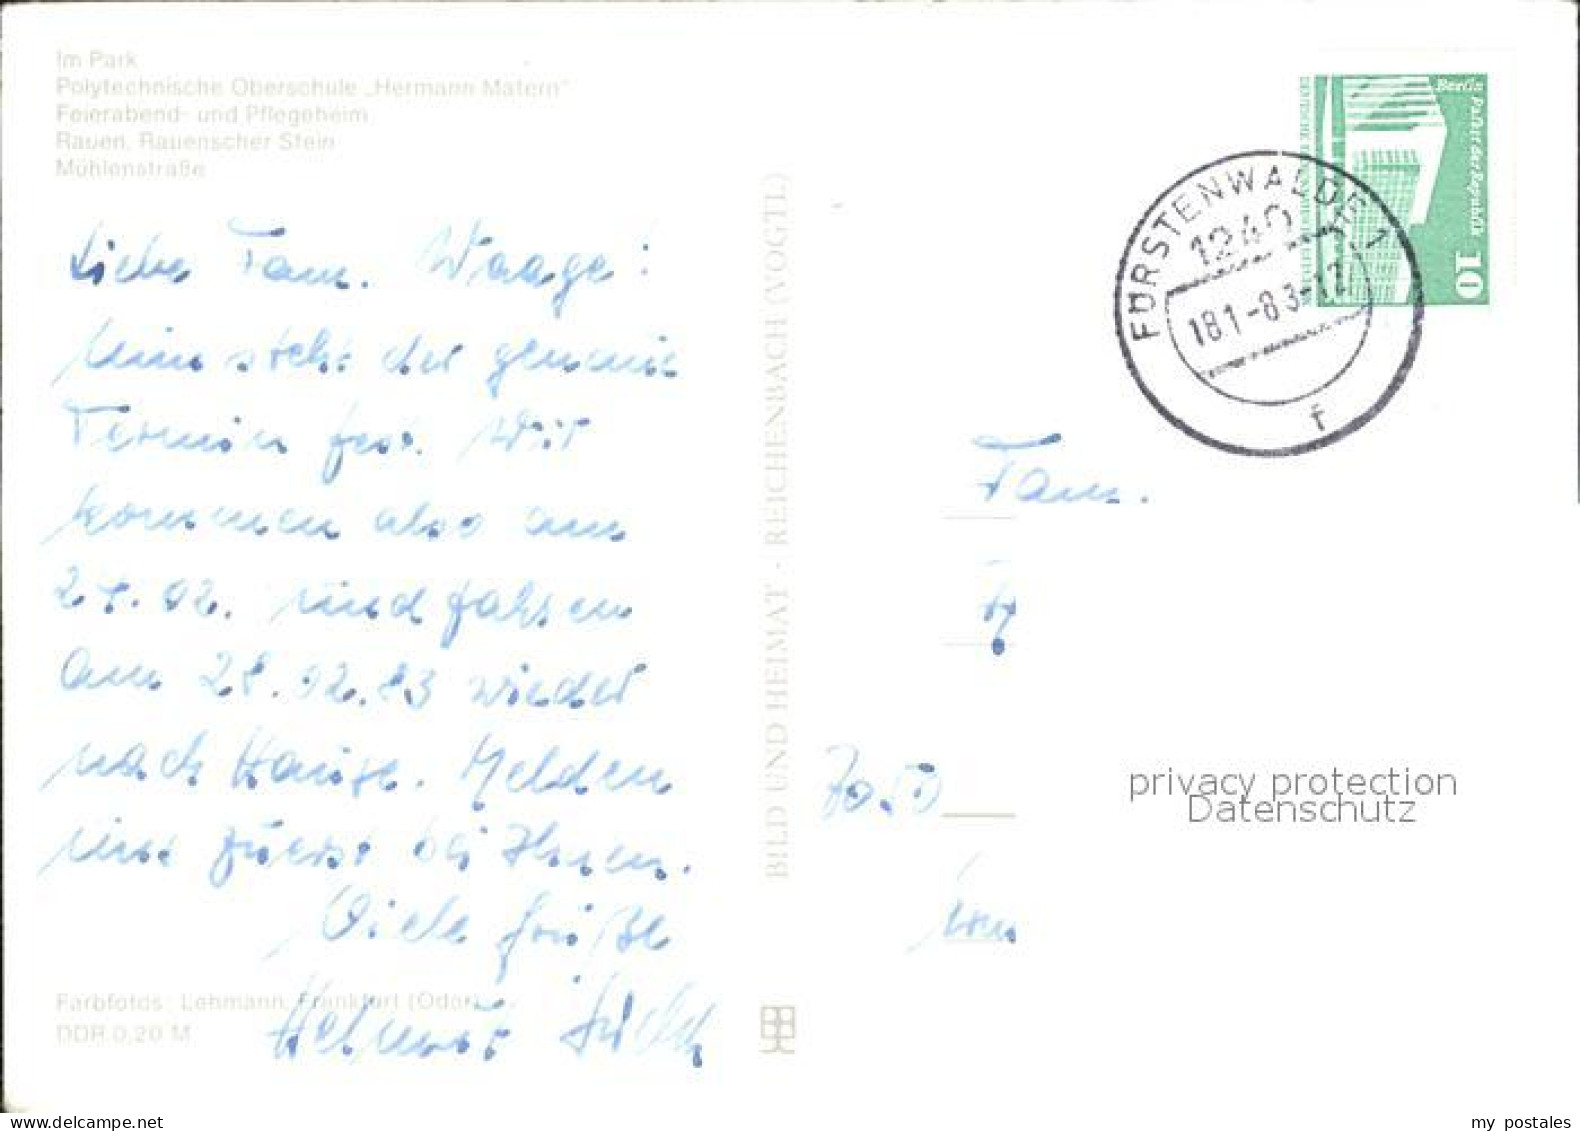 Im Park
Polytechnische Oberschule „Hermann Matern"
Feierabend- und Pflegeheim
Rauen, Rauenscher Stein
Mühlenstraße
Liebe Fam. Waage!
nun steht der genaue
Termin fest. Wir
kommen also am
02. und fahren
am 28.02.83 wieder
nach Hause. Melden
uns zuerst bei Ihnen.
Viele Grüße
Helmut
Farbfotos: Lehmann, Frankfurt (Oder)
DDR 0,20 M
BILD UND HEIMAT · REICHENBACH (VOGTL)
Berlin Palast der Republik
10
FÜRSTENWALDE 1
1240
18.1-83-17
f
Fam.
privacy protection
Datenschutz
www.delcampe.net
my postales